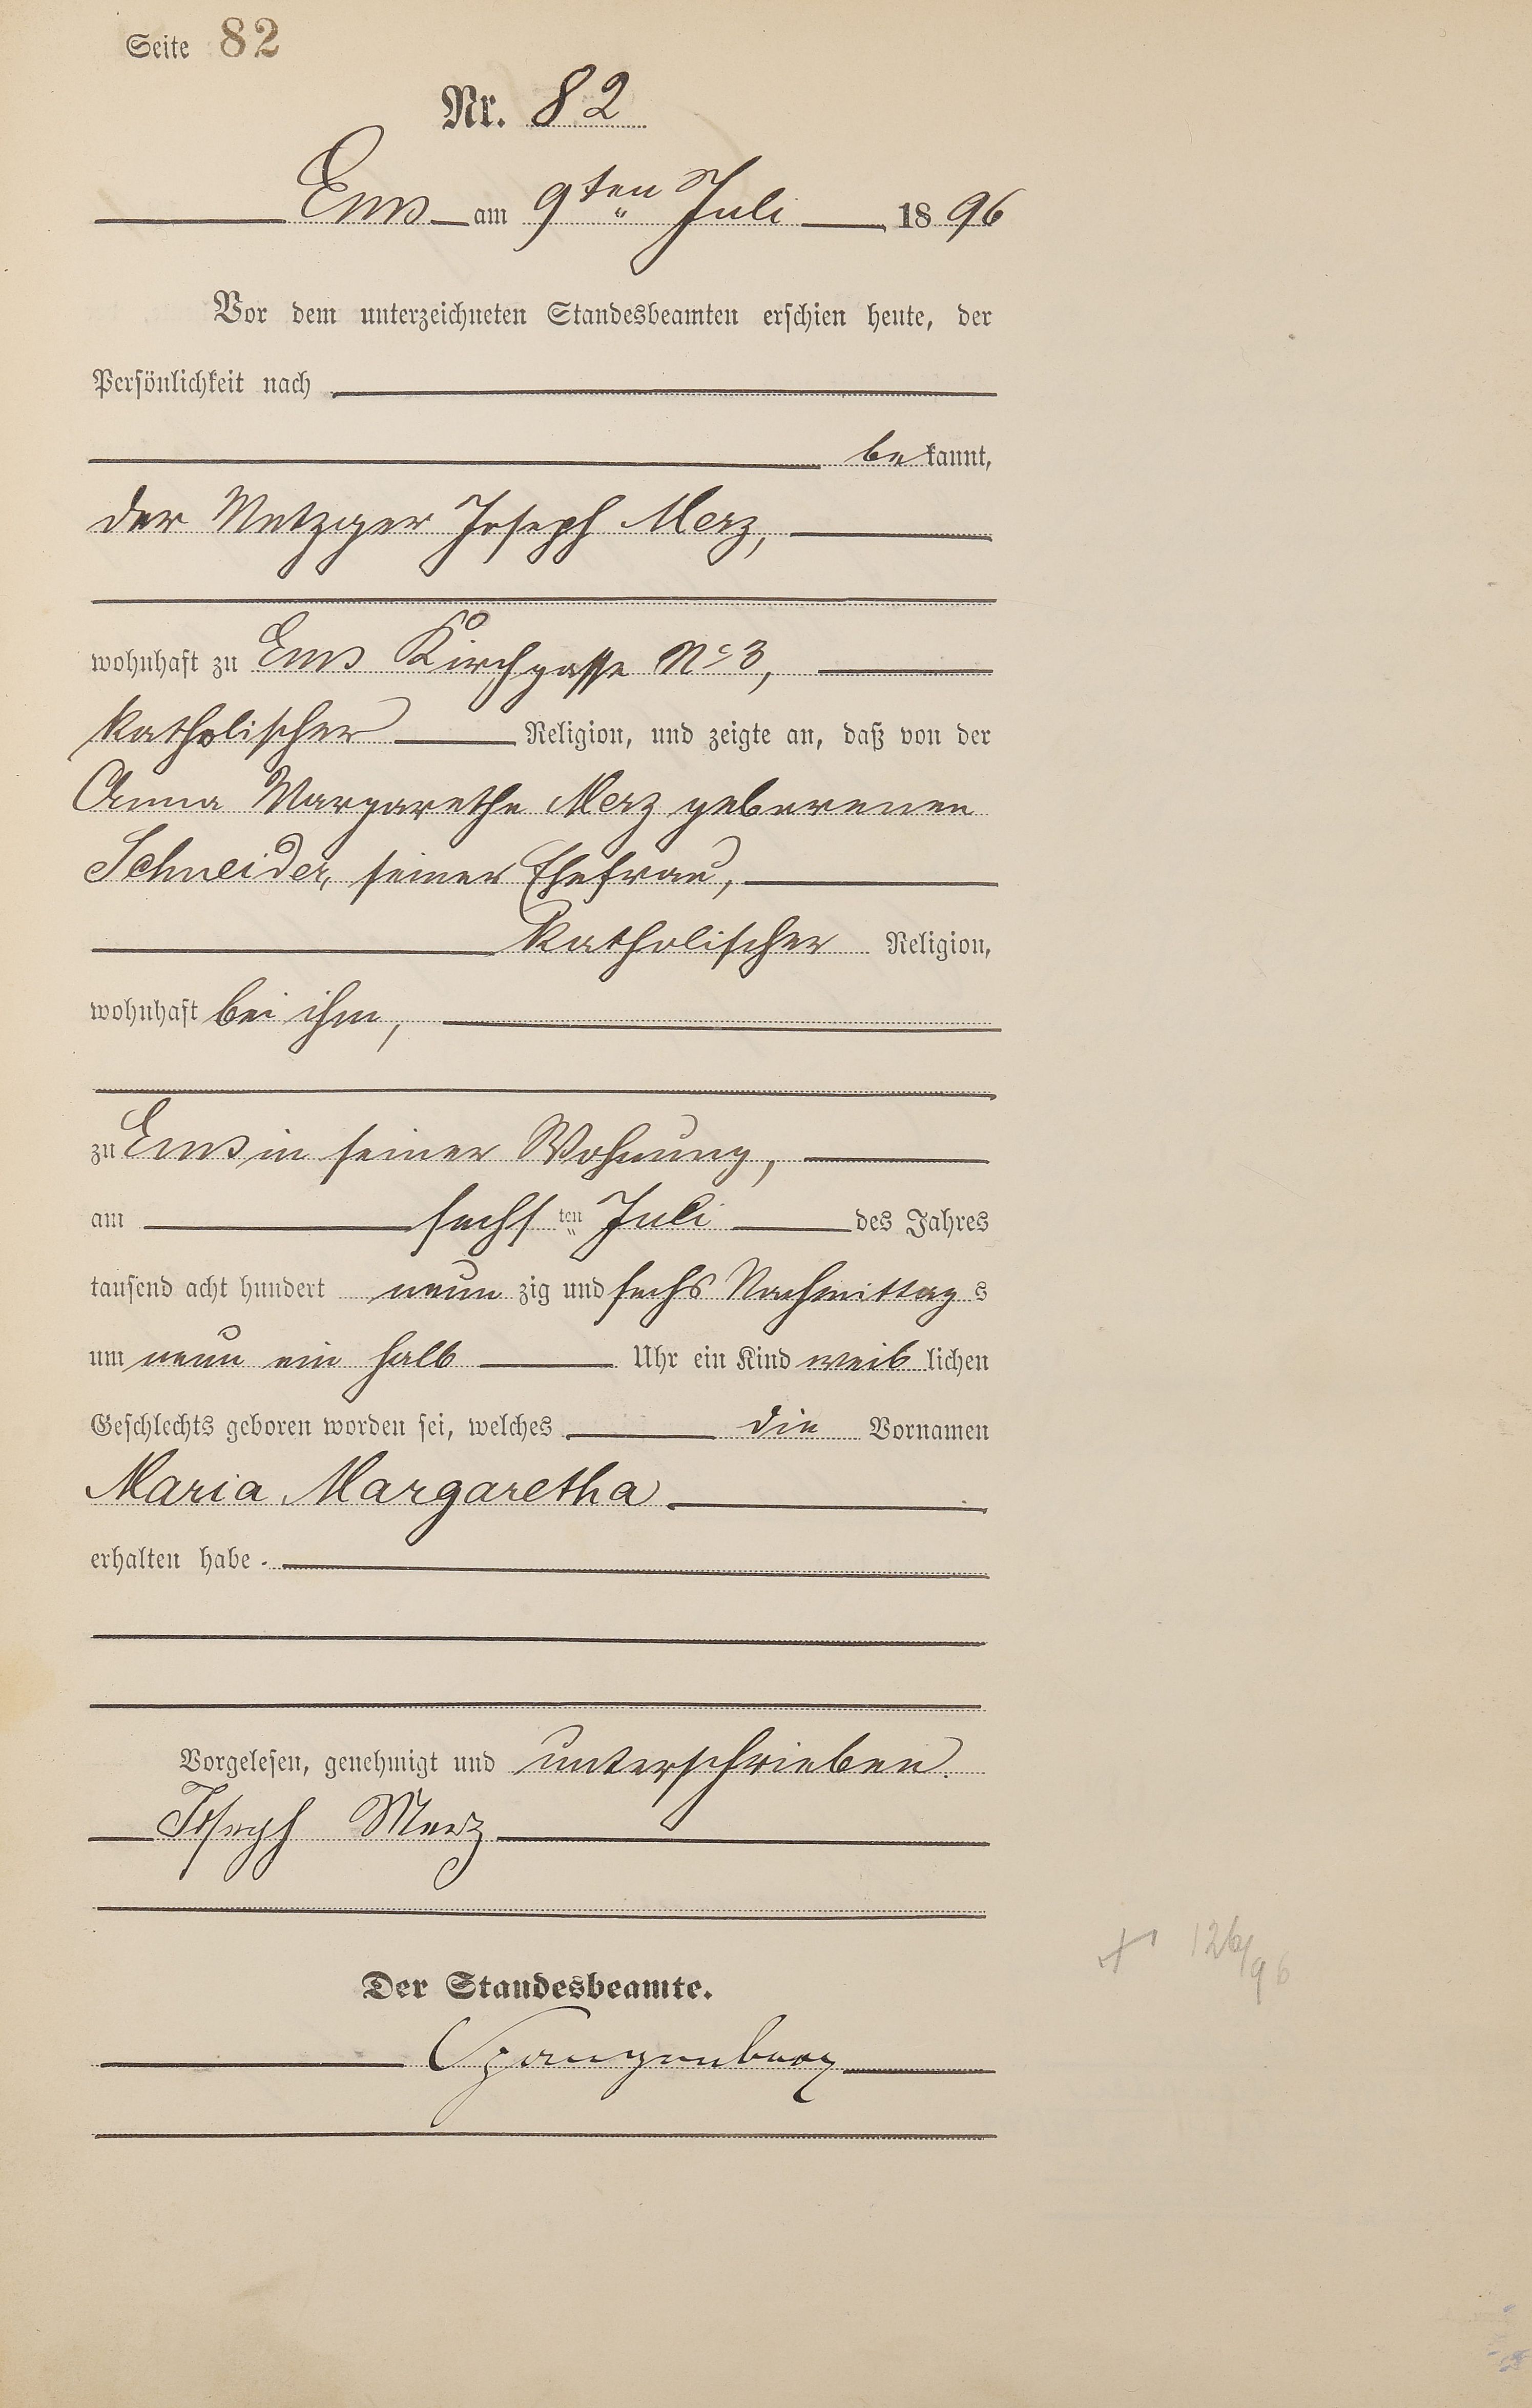 Seite 82
Nr. 82
Ems am 9ten Juli 1896
Vor dem unterzeichneten Standesbeamten erschien heute, der
Persönlichkeit nach
bekannt,
der Metzger Joseph Merz,
wohnhaft zu Ems Kirchgasse No 3,
katholischer Religion, und zeigte an, daß von der
Anna Margarethe Merz geborenen
Schneider, seiner Ehefrau,
katholischer Religion,
wohnhaft bei ihm,
zu Ems in seiner Wohnung,
am sechsten Juli des Jahres
tausend acht hundert neunzig und sechs Nachmittags
um neun ein halb Uhr ein Kind weiblichen
Geschlechts geboren worden sei, welches die Vornamen
Maria Margaretha
erhalten habe.
Vorgelesen, genehmigt und unterschrieben.
Joseph Merz
+ 126/96
Der Standesbeamte.
Spangenberg